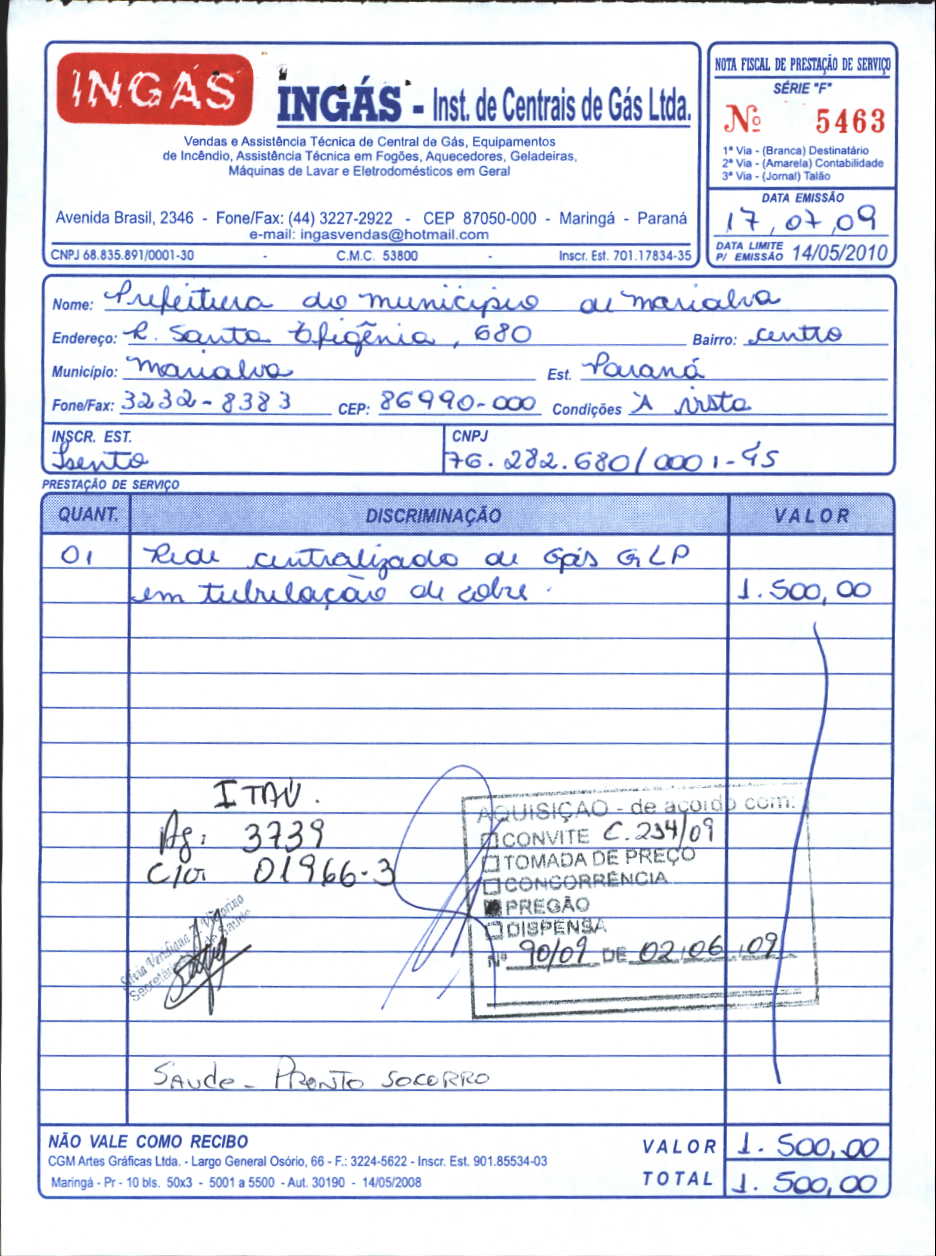 INGÁS
INGÁS - Inst. de Centrais de Gás Ltda.
Vendas e Assistência Técnica de Central de Gás, Equipamentos
de Incêndio, Assistência Técnica em Fogões, Aquecedores, Geladeiras,
Máquinas de Lavar e Eletrodomésticos em Geral
Avenida Brasil, 2346 - Fone/Fax: (44) 3227-2922 - CEP 87050-000 - Maringá - Paraná
e-mail: ingasvendas@hotmail.com
CNPJ 68.835.891/0001-30 - C.M.C. 53800 - Inscr. Est. 701.17834-35
NOTA FISCAL DE PRESTAÇÃO DE SERVIÇO
SÉRIE "F"
Nº 5463
1ª Via - (Branca) Destinatário
2ª Via - (Amarela) Contabilidade
3ª Via - (Jornal) Talão
DATA EMISSÃO
17,07,09
DATA LIMITE P/ EMISSÃO 14/05/2010
Nome: Prefeitura do município de marialva
Endereço: R. Santa Efigênia, 680 Bairro: centro
Município: Marialva Est. Paraná
Fone/Fax: 3232-8383 CEP: 86990-000 Condições À vista
INSCR. EST. CNPJ
Isento 76.282.680/0001-45
PRESTAÇÃO DE SERVIÇO
QUANT. DISCRIMINAÇÃO VALOR
01 Rede centralizado de Gás GLP
em tubulação de cobre. 1.500,00
ITAÚ.
Ag: 3739
C/C: 01966-3
AQUISIÇÃO - de acordo com:
CONVITE C.234/09
TOMADA DE PREÇO
CONCORRÊNCIA
PREGÃO
DISPENSA
Nº 90/09 DE 02/06/09
Secretária de Saúde
Saude - Pronto Socorro
NÃO VALE COMO RECIBO
CGM Artes Gráficas Ltda. - Largo General Osório, 66 - F.: 3224-5622 - Inscr. Est. 901.85534-03
Maringá - Pr - 10 bls. 50x3 - 5001 a 5500 - Aut. 30190 - 14/05/2008
VALOR 1.500,00
TOTAL 1.500,00